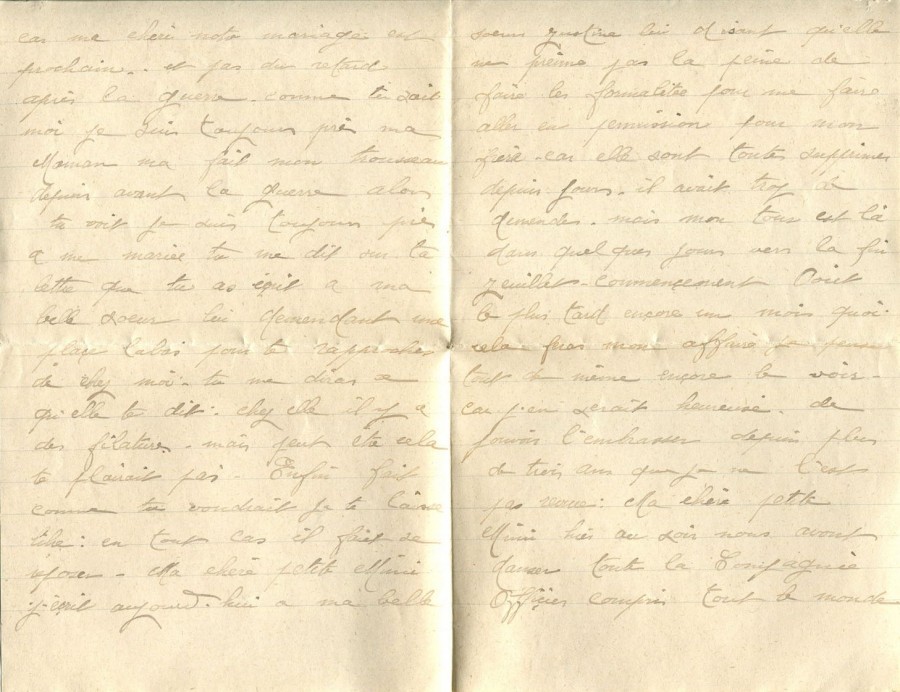 car ma chère notre mariage est
prochain.. et pas du retard
après la guerre. comme tu sait
moi je suis toujours près ma
Maman ma fait mon trousseau
depuis avant la guerre alors
tu voit je suis toujours près
a me marier tu me dit sur ta
lettre que tu as écrit a ma
belle soeur lui demendant une
place labas pour te rapprocher
de chez moi. tu me diras ce
qu'elle te dit: chez elle il y a
des filature. mais peut être cela
te plairait pas. Enfin fait
comme tu voudrait je te laisse
libre: en tout cas il faut se
reposer. Ma chère petite Mimi
j'ecrit aujourd-hui a ma belle
soeur Justine lui disant qu'elle
ne prenne pas la peine de
faire les formalitée pour me faire
aller en permission pour mon
frère. car elle sont toutes supprimer
depuis jours. il avait trop de
demendes. mais mon tour est là
dans quelques jours vers la fin
Juillet. Commencement Août
le plus tard encore un mois quoi.
cela feras mon affaire je pense
tout de même encore le voir.
car j'en serait heureuse. de
pouvoir l'embrasser depuis plus
de trois ans que je ne l'est
pas vue: Ma chère petite
Mimi hier au soir nous avont
danser toute la Compagnie
Officier compris tout le monde